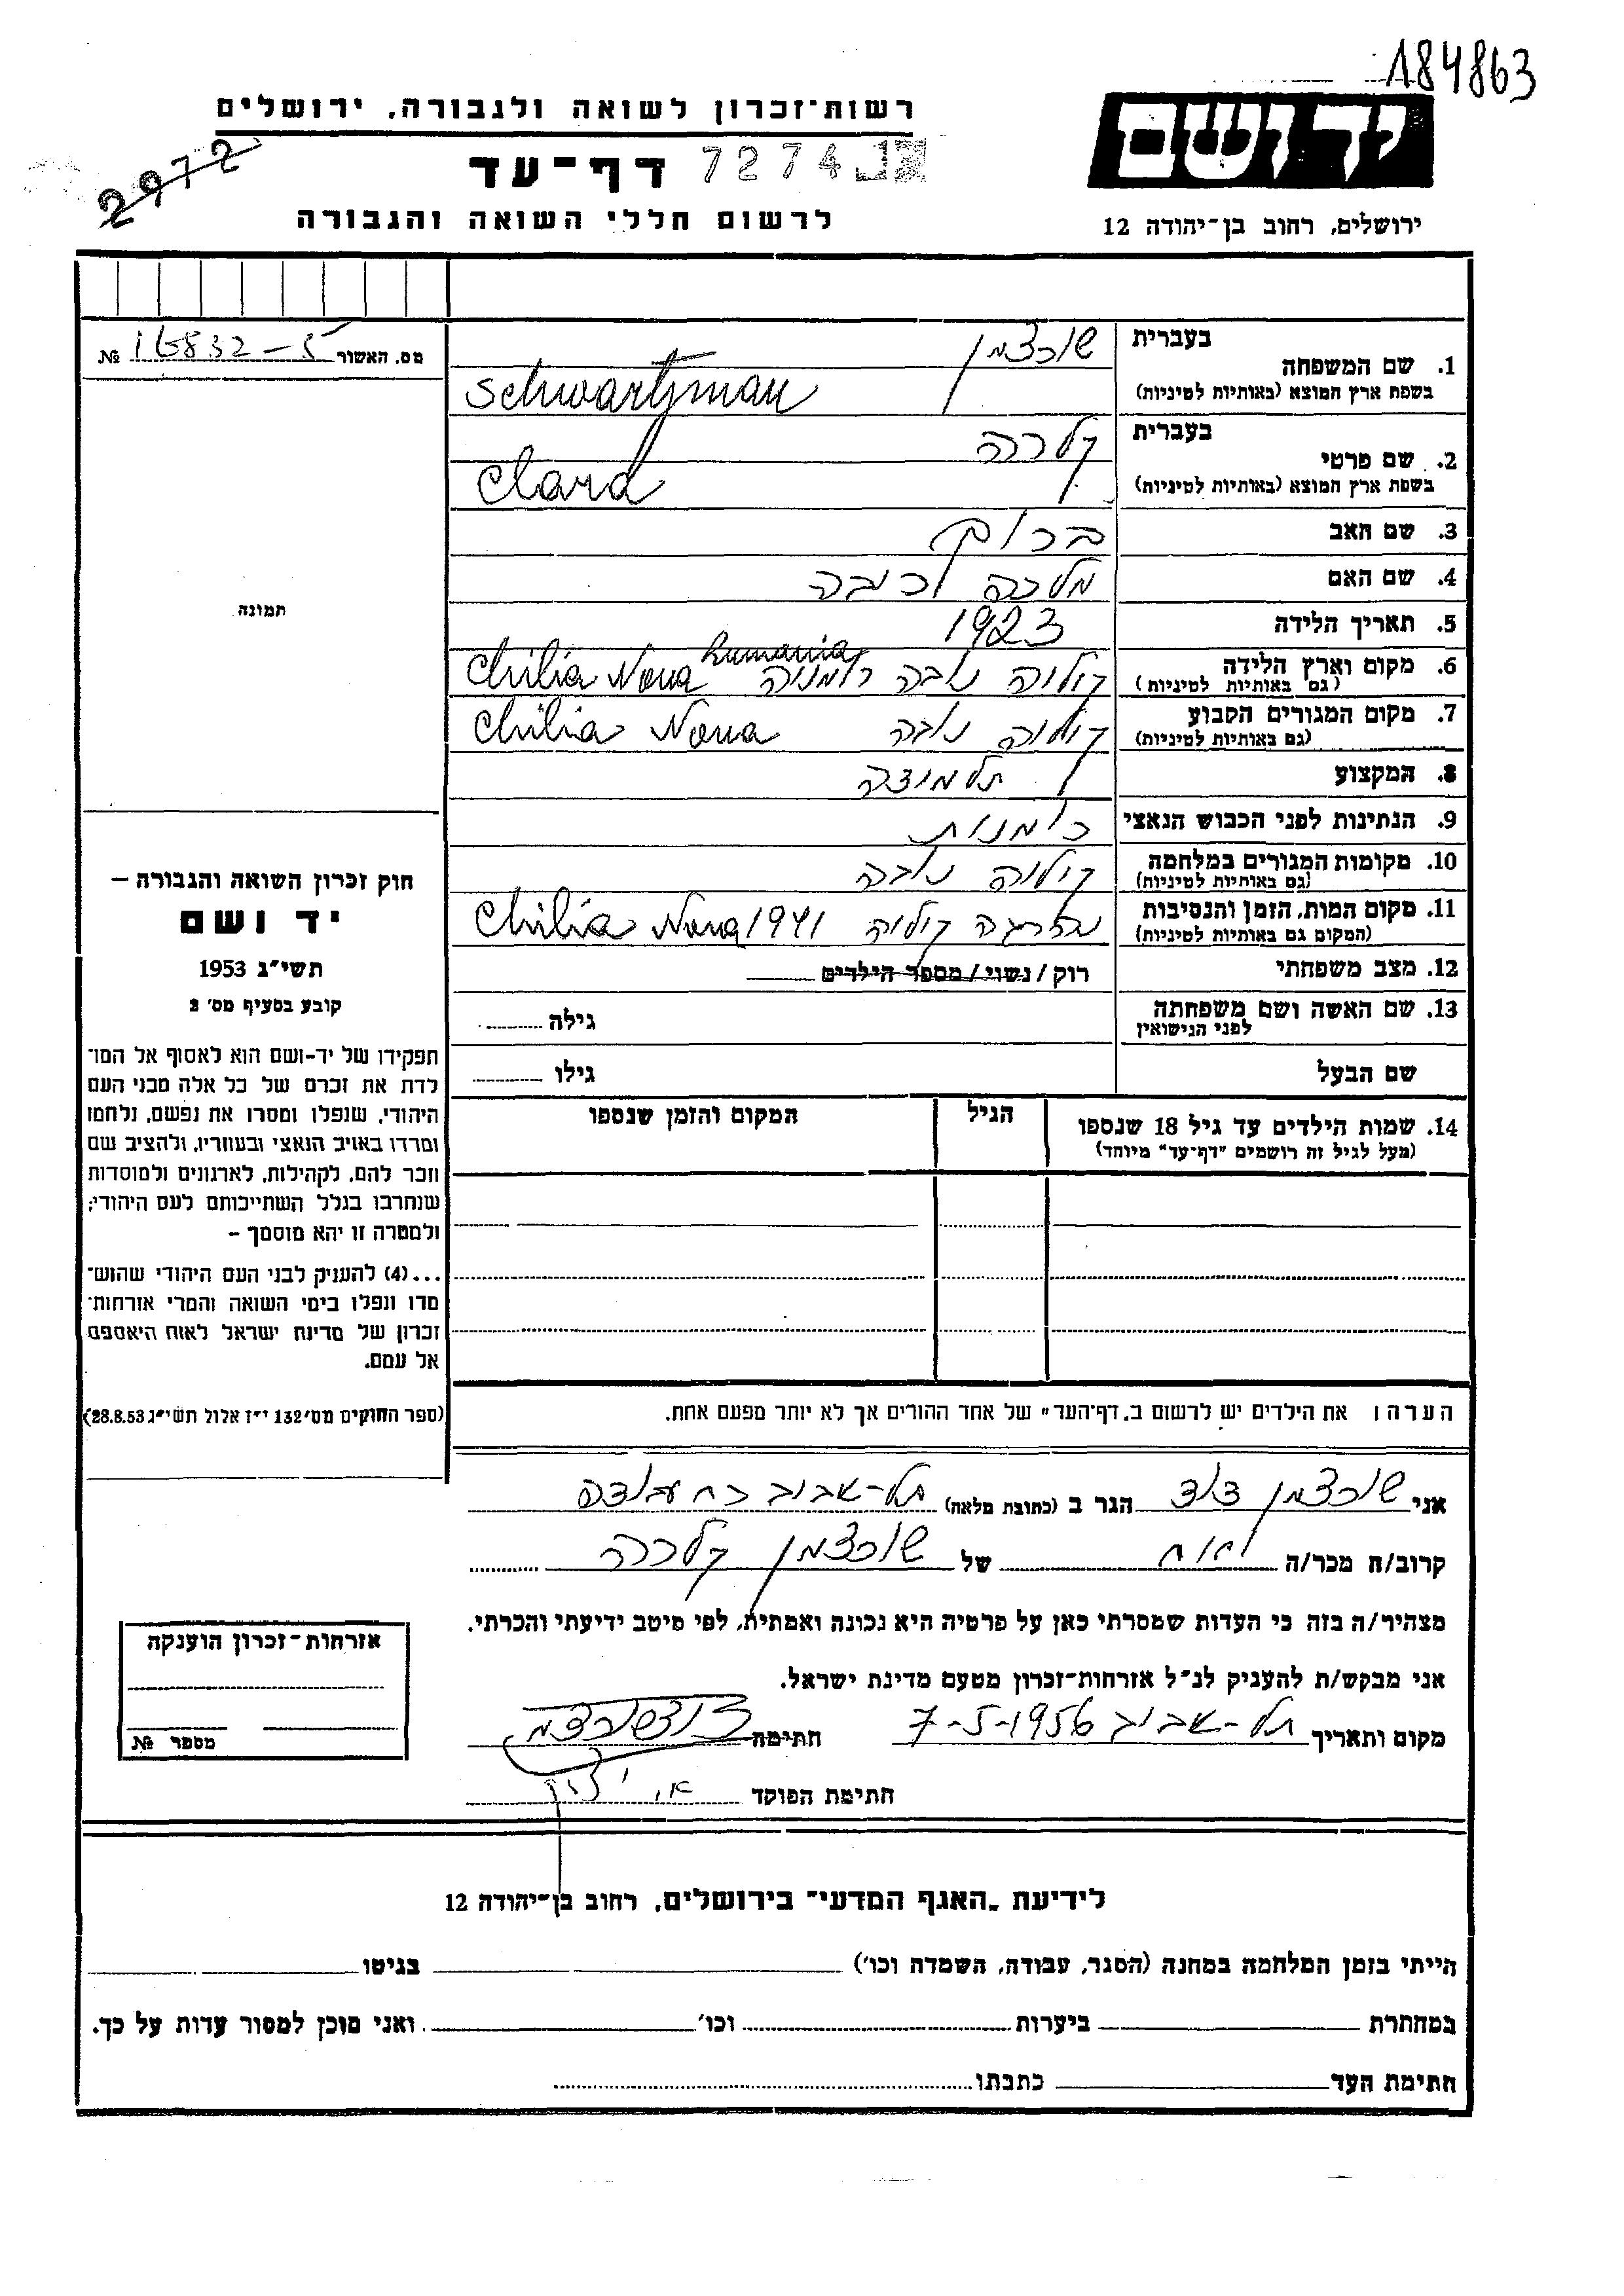 184863
רשות-זכרון לשואה ולגבורה, ירושלים
יד ושם
2972
דף-עד
7274
לרשום חללי השואה והגבורה
ירושלים, רחוב בן-יהודה 12
מס. האשור 16832-5 №
תמונה
בעברית שורצמן
1. שם המשפחה
בשפת ארץ המוצא (באותיות לטיניות) Schwartzman
בעברית קלרה
2. שם פרטי
בשפת ארץ המוצא (באותיות לטיניות) Clara
3. שם האב ברוך
4. שם האם מלכה
5. תאריך הלידה 1923
6. מקום וארץ הלידה קיליה נובה רומניה Chilia Noua Rumania
(גם באותיות לטיניות)
7. מקום המגורים הקבוע קיליה נובה Chilia Noua
(גם באותיות לטיניות)
8. המקצוע תלמידה
9. הנתינות לפני הכבוש הנאצי רומנית
10. מקומות המגורים במלחמה קיליה נובה
(גם באותיות לטיניות)
11. מקום המות, הזמן והנסיבות נהרגה קיליה Chilia Noua 1941
(המקום גם באותיות לטיניות)
12. מצב משפחתי רוק / נשוי / מספר הילדים
13. שם האשה ושם משפחתה גילה
לפני הנישואין
שם הבעל גילו
14. שמות הילדים עד גיל 18 שנספו הגיל המקום והזמן שנספו
(מעל לגיל זה רושמים "דף-עד" מיוחד)
חוק זכרון השואה והגבורה –
יד ושם
תשי"ג 1953
קובע בסעיף מס' 2
תפקידו של יד-ושם הוא לאסוף אל המו־
לדת את זכרם של כל אלה מבני העם
היהודי, שנפלו ומסרו את נפשם, נלחמו
ומרדו באויב הנאצי ובעוזריו, ולהציב שם
וזכר להם, לקהילות, לארגונים ולמוסדות
שנחרבו בגלל השתייכותם לעם היהודי;
ולמטרה זו יהא מוסמך –
...(4) להעניק לבני העם היהודי שהוש־
מדו ונפלו בימי השואה והמרי אזרחות־
זכרון של מדינת ישראל לאות היאספם
אל עמם.
(ספר החוקים מס' 132 י"ז אלול תשי"ג 28.8.53)
הערה: את הילדים יש לרשום ב"דף-העד" של אחד ההורים אך לא יותר מפעם אחת.
אני שורצמן דוד הגר ב (כתובת מלאה) תל-אביב
קרוב/ה מכר/ה אחות של שורצמן קלרה
מצהיר/ה בזה כי העדות שמסרתי כאן על פרטיה היא נכונה ואמתית, לפי מיטב ידיעתי והכרתי.
אני מבקש/ת להעניק לנ"ל אזרחות-זכרון מטעם מדינת ישראל.
מקום ותאריך תל-אביב 7-5-1956 חתימה
חתימת הפוקד
אזרחות-זכרון הוענקה
מספר №
לידיעת "האגף המדעי" בירושלים, רחוב בן-יהודה 12
הייתי בזמן המלחמה במחנה (הסגר, עבודה, השמדה וכו') בגיטו
במחתרת ביערות וכו' ואני מוכן למסור עדות על כך.
חתימת העד כתבתו